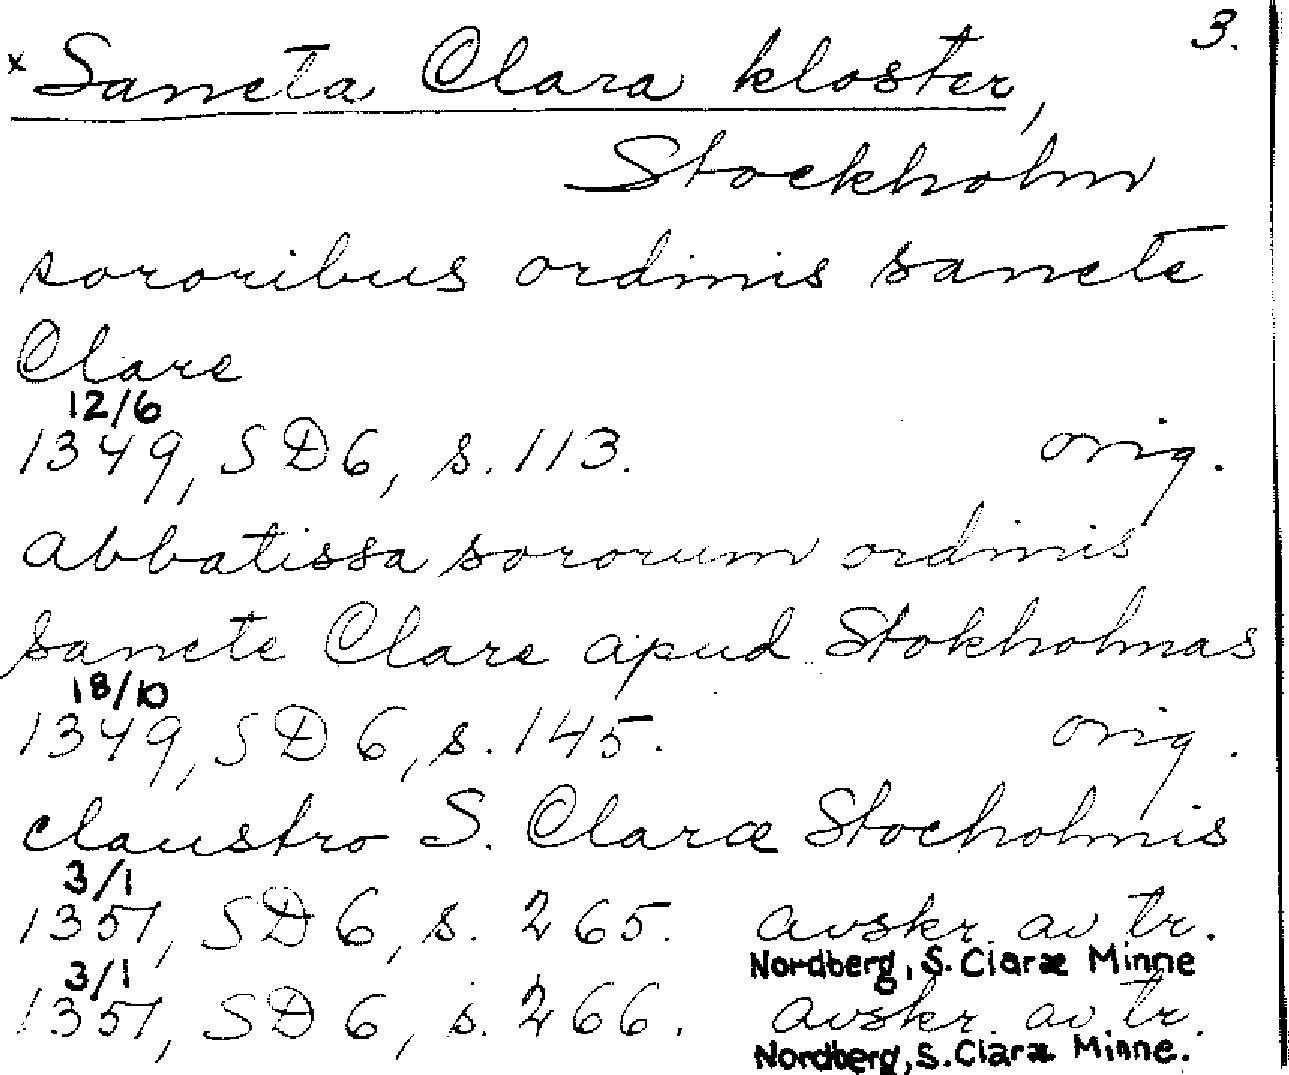 3.
x Sancta Clara kloster,
Stockholm
sororibus ordinis sancte
Clare
12/6
1349, SD 6, s. 113. orig.
abbatissa sororum ordinis
sancte Clare apud Stokholmas
18/10
1349, SD 6, s. 145. orig.
claustro S. Claræ Stocholmis
3/1
1351, SD 6, s. 265. avskr. av tr.
Nordberg, S. Claræ Minne
3/1
1351, SD 6, s. 266. avskr. av tr.
Nordberg, S. Claræ Minne.